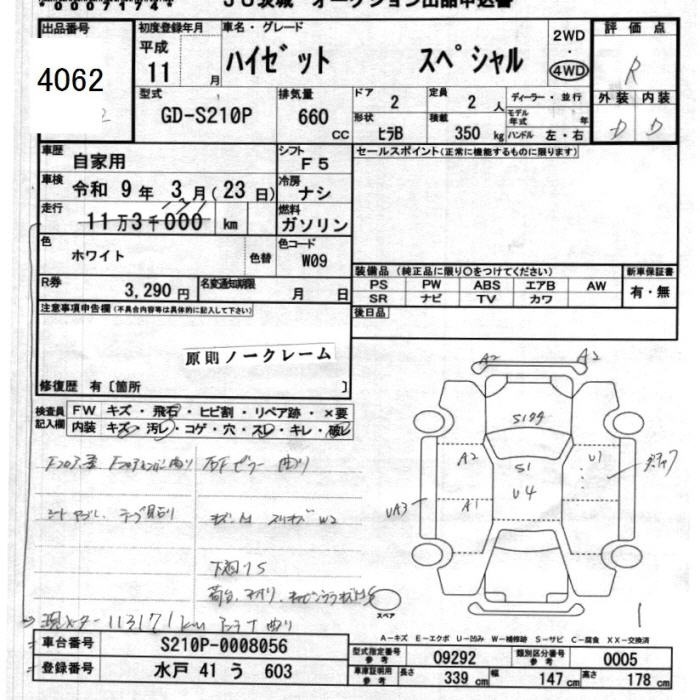 JU茨城 オークション出品申込書
出品番号
4062
初度登録年月
平成
11 月
車名・グレード
ハイゼット スペシャル
2WD
・
4WD
評価点
R
外装 内装
D D
型式
GD-S210P
排気量
660 CC
ドア
2
定員
2 人
ディーラー・並行
形状
ヒラB
積載
350 kg
モデル年式 年
ハンドル 左・右
車歴
自家用
シフト
F5
セールスポイント(正常に機能するものに限ります)
車検
令和 9 年 3 月 (23 日)
冷房
ナシ
走行
11万3千000 km
燃料
ガソリン
色
ホワイト
色替
色コード
W09
R券
3,290 円
名変通知期限
月 日
装備品 (純正品に限り○をつけてください)
PS PW ABS エアB AW
SR ナビ TV カワ
新車保証書
有・無
後日品
注意事項申告欄 (不具合内容等は具体的に記入して下さい)
原則ノークレーム
修復歴 有 [箇所 ]
検査員記入欄
FW キズ・飛石・ヒビ割・リペア跡・×要
内装 キズ・汚レ・コゲ・穴・スレ・キレ・破レ
A2 A2
S1
A2 S1 U1
U4
UA3 A1
下回りS
現メーター 113171km アンテナ曲り
スペア
A-キズ E-エクボ U-凹み W-補修跡 S-サビ C-腐食 XX-交換済
車台番号
S210P-0008056
登録番号
水戸 41 う 603
型式指定番号 参考
09292
類別区分番号 参考
0005
車庫証明用 参考
長さ 339 cm 幅 147 cm 高さ 178 cm